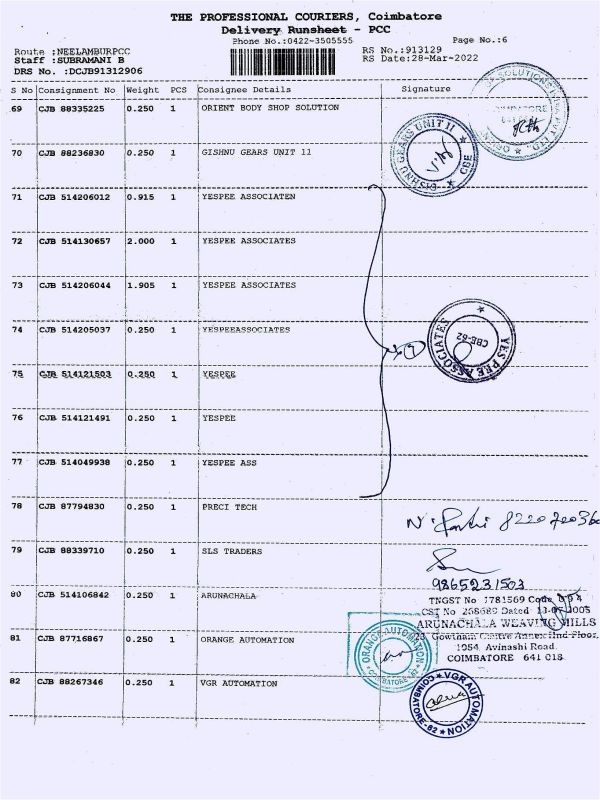 THE PROFESSIONAL COURIERS, Coimbatore
Delivery Runsheet - PCC
Phone No.:0422-3505555 Page No.:6
Route :NEELAMBURPCC RS No.:913129
Staff :SUBRAMANI B RS Date:28-Mar-2022
DRS No. :DCJB91312906
S No Consignment No Weight PCS Consignee Details Signature
69 CJB 88335225 0.250 1 ORIENT BODY SHOP SOLUTION
COIMBATORE
70 CJB 88236830 0.250 1 GISHNU GEARS UNIT 11
GISHNU GEARS UNIT II ★ CBE ★
71 CJB 514206012 0.915 1 YESPEE ASSOCIATEN
72 CJB 514130657 2.000 1 YESPEE ASSOCIATES
73 CJB 514206044 1.905 1 YESPEE ASSOCIATES
74 CJB 514205037 0.250 1 YESPEEASSOCIATES
YES PEE ASSOCIATES ★
CBE-62
75 CJB 514121503 0.250 1 YESPEE
76 CJB 514121491 0.250 1 YESPEE
77 CJB 514049938 0.250 1 YESPEE ASS
78 CJB 87794830 0.250 1 PRECI TECH
79 CJB 88339710 0.250 1 SLS TRADERS
9865231503
80 CJB 514106842 0.250 1 ARUNACHALA
TNGST No 1781569 Code
CST No 268689 Dated
ARUNACHALA WEAVING MILLS
Gowtham Centre Annex IInd Floor,
1054, Avinashi Road,
COIMBATORE 641 018
81 CJB 87716867 0.250 1 ORANGE AUTOMATION
ORANGE AUTOMATION
COIMBATORE-62
82 CJB 88267346 0.250 1 VGR AUTOMATION
VGR AUTOMATION
COIMBATORE-62